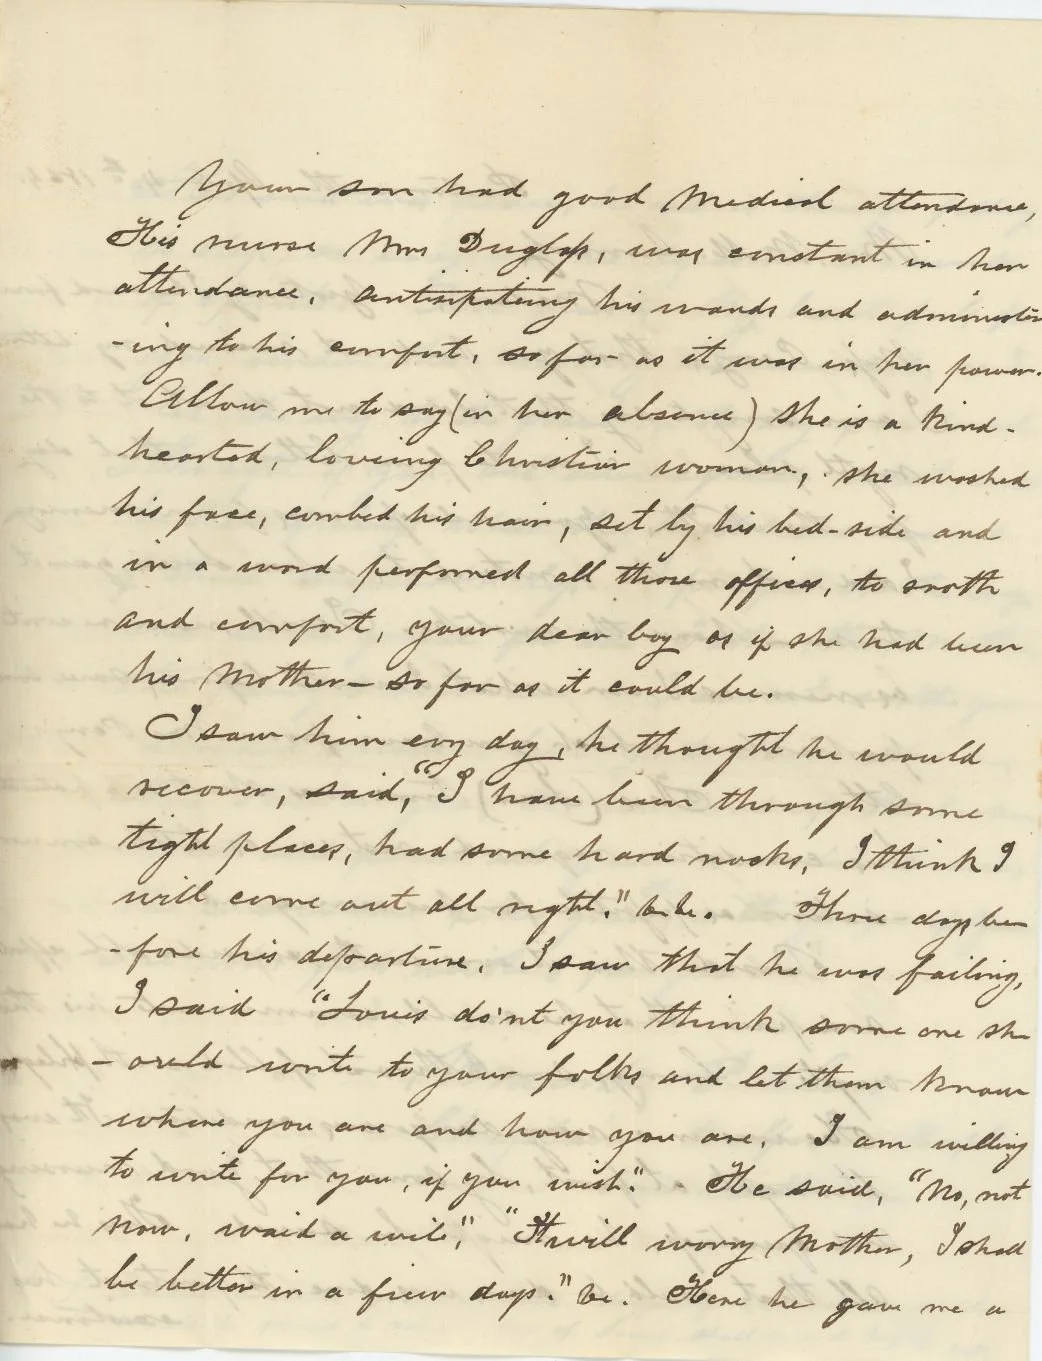 Your son had good Medical attendance,
His nurse Mrs Duglass, was constant in her
attendance. antisipateing his wands and administer
-ing to his comfort, so far as it was in her power.
Allow me to say (in her absence) She is a kind-
hearted, loveing Christian woman, she washed
his face, combed his hair, set by his bed-side and
in a word performed all those offices, to sooth
and comfort, your dear boy as if she had been
his Mother - so far as it could be.
I saw him evry day, he thought he would
recover, said, "I have been through some
tight places, had some hard nocks, I think I
will come out all right." &c. &c. Three days be
-fore his departure. I saw that he was failing,
I said "Louis do'nt you think some one sh
-ould write to your folks and let them know
where you are and how you are. I am willing
to write for you, if you wish." He said, "No, not
now, waid a wile," "It will worry Mother, I shall
be better in a fiew days." &c. Here he gave me a